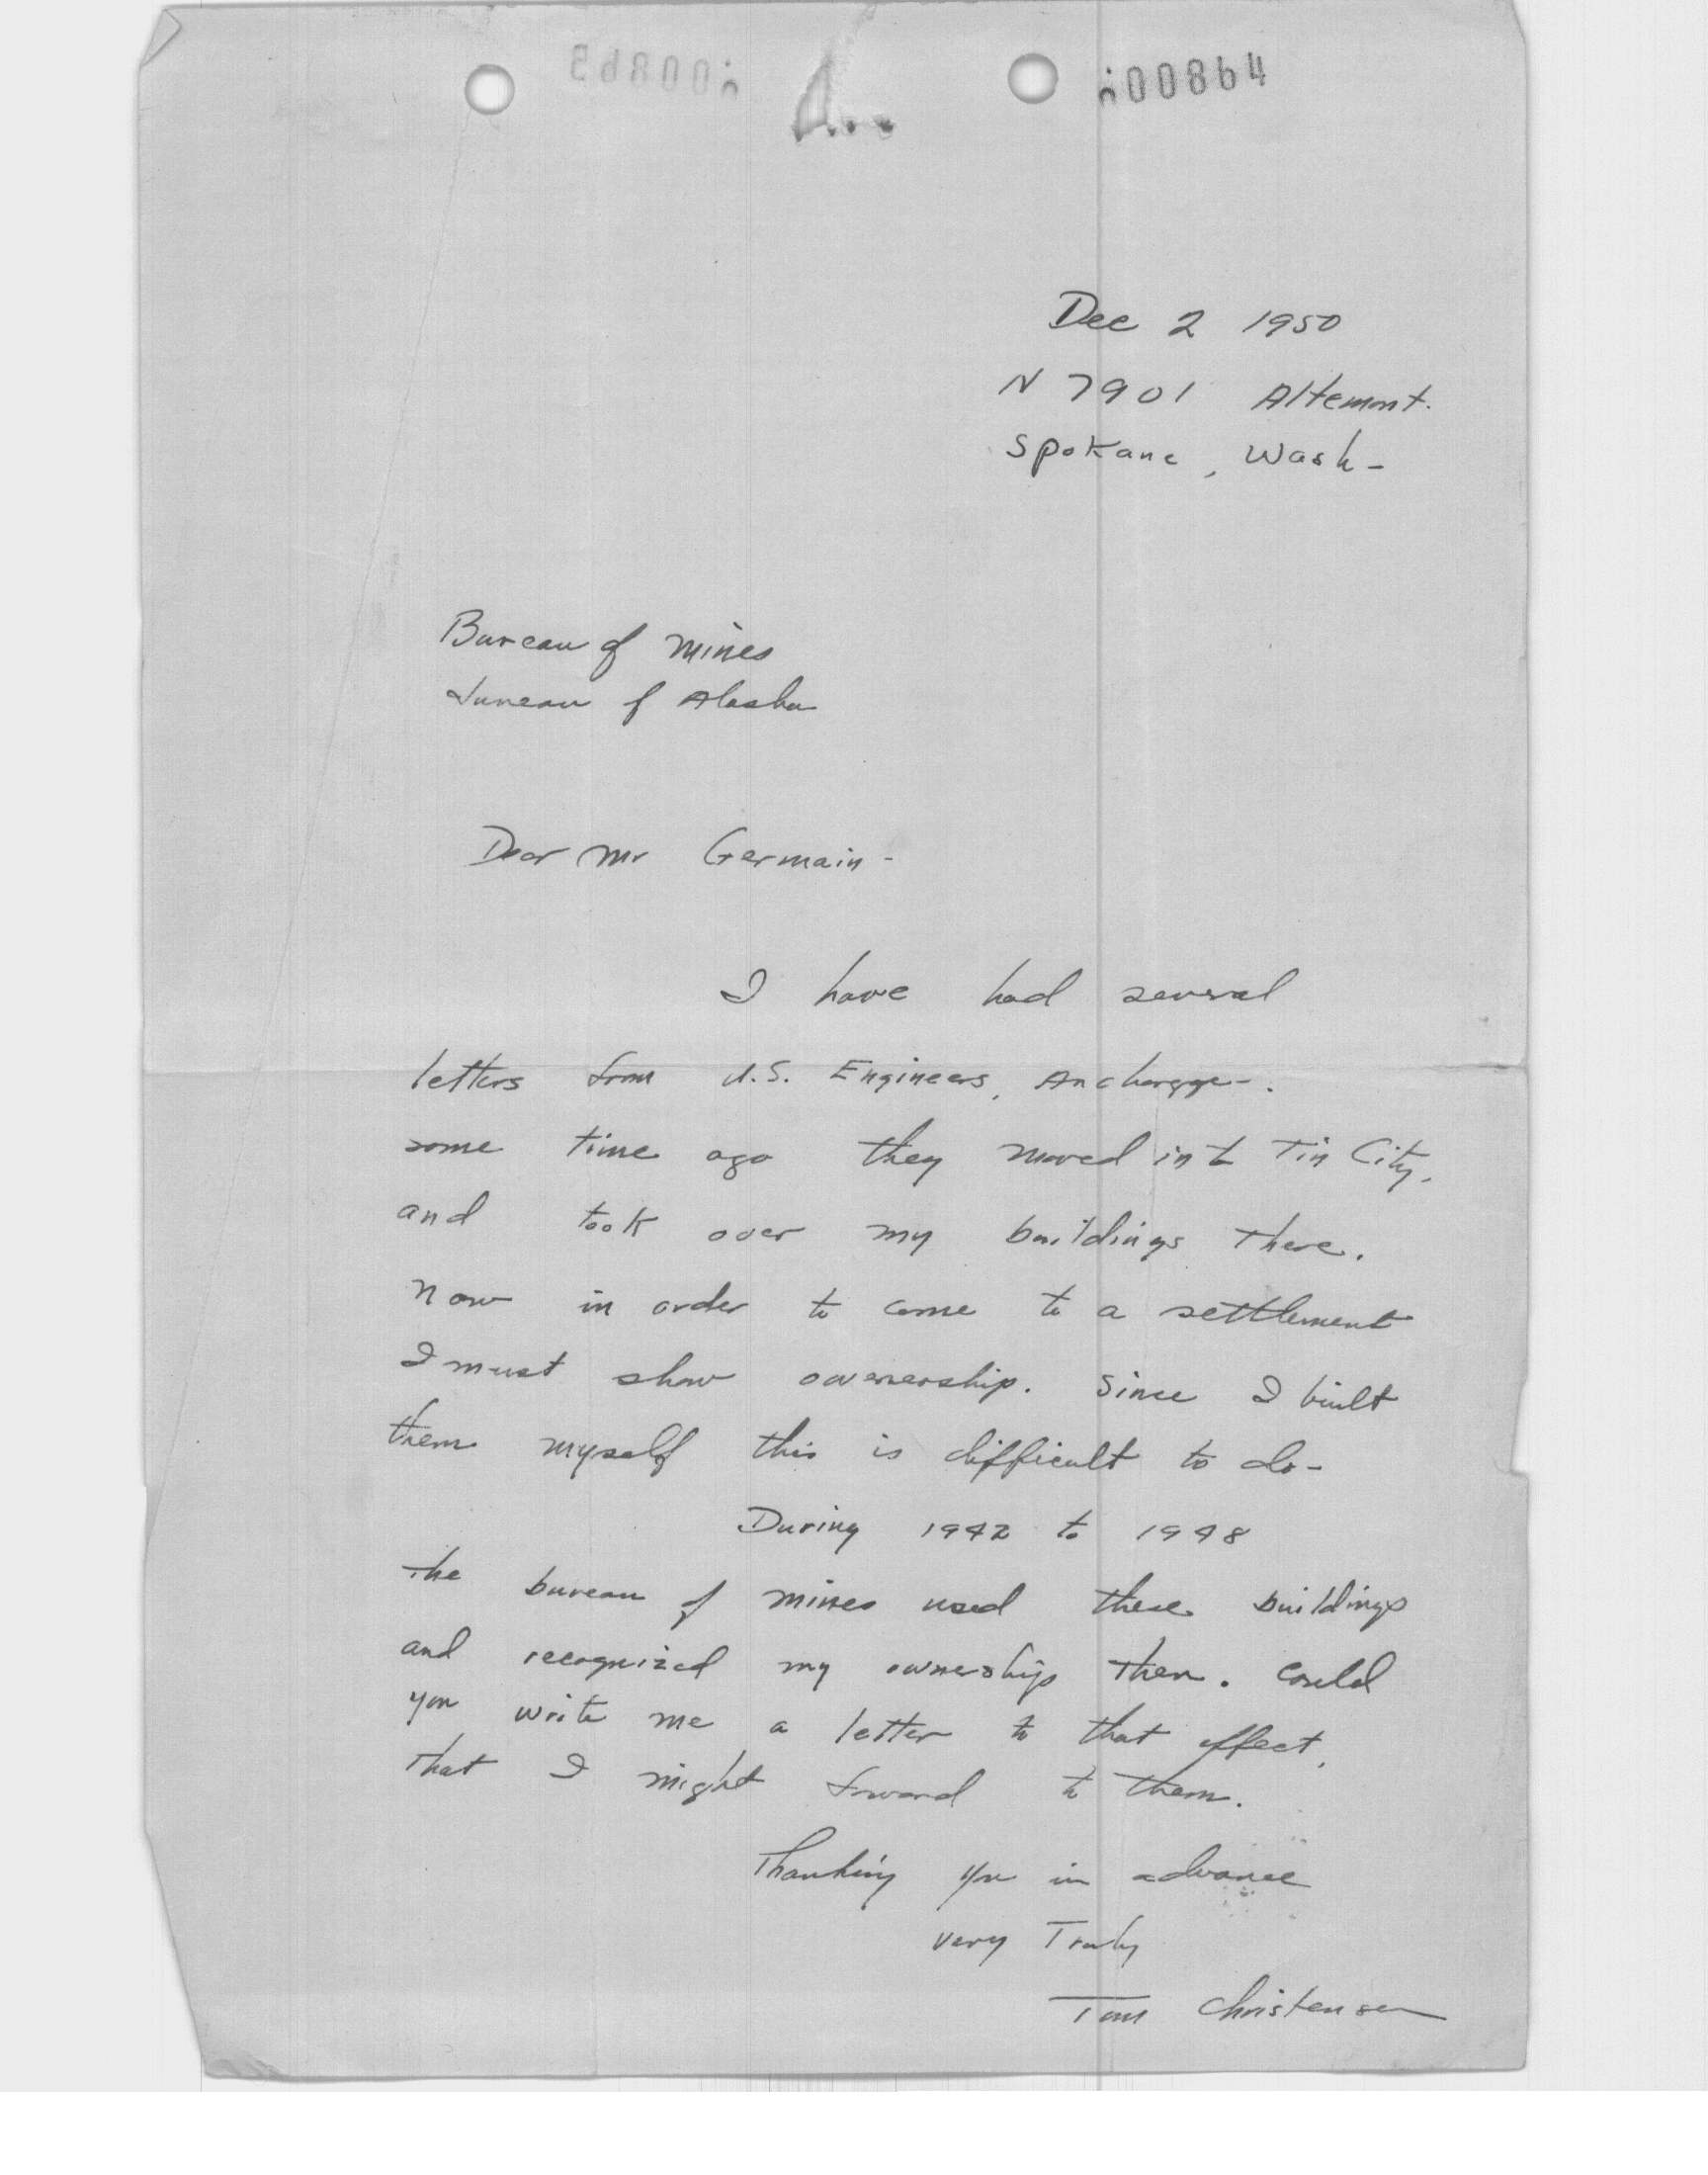 00864
Dec 2 1950
N 7901 Altemont.
Spokane, Wash-
Bureau of Mines
Juneau of Alaska
Dear Mr Germain-
I have had several
letters from U.S. Engineers, Anchorage-.
some time ago they moved in to Tin City,
and took over my buildings there.
Now in order to come to a settlement
I must show owenership. Since I built
them myself this is difficult to do-
During 1942 to 1948
the bureau of mines used these buildings
and recognized my ownership then. Could
you write me a letter to that effect,
that I might forward to them.
Thanking you in advance
very Truly
Tom Christensen